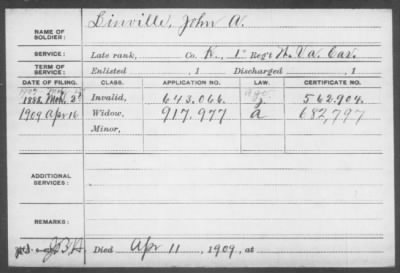 NAME OF SOLDIER: Linville, John A.
SERVICE: Late rank, Co. K, 1" Reg't W. Va. Cav.
TERM OF SERVICE: Enlisted , 1 Discharged , 1
DATE OF FILING. CLASS. APPLICATION NO. LAW. CERTIFICATE NO.
1888. Mch. 2 Invalid, 643.066. 562.904.
1909 Apr 16 Widow, 917.977 a 682,797
Minor,
ADDITIONAL SERVICES:
REMARKS:
Died Apr 11, 1909, at